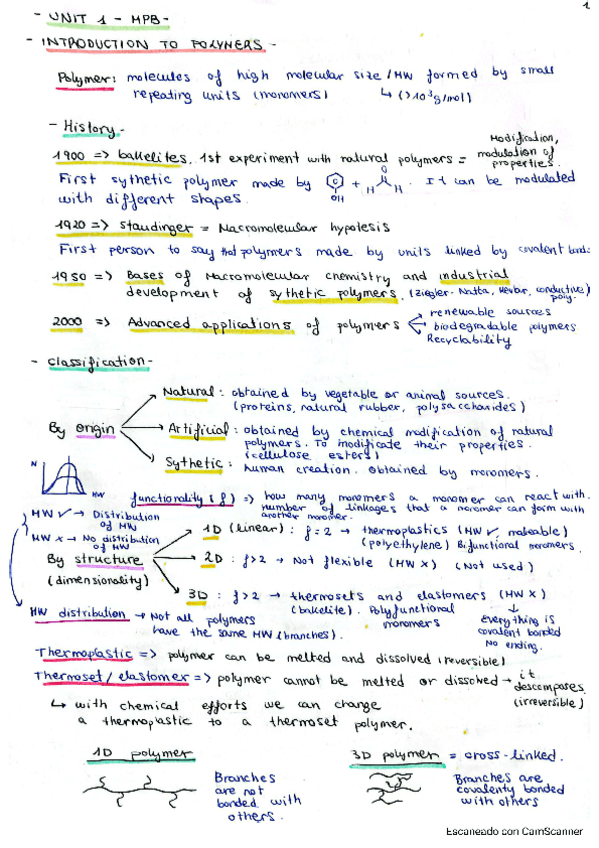 1
- UNIT 1 - MPB -
- INTRODUCTION TO POLYMERS -
Polymer: molecules of high molecular size/MW formed by small
repeating units (monomers) ↳ (>10³g/mol)
- History -
1900 => bakelites. 1st experiment with natural polymers = Modification, modulation of properties.
First sythetic polymer made by OH + H H. It can be modulated
with different shapes.
1920 => Staudinger = Macromolecular hypotesis
First person to say that polymers made by units linked by covalent bonds
1950 => Bases of Macromolecular chemistry and industrial
development of sythetic polymers. (Ziegler-Natta, Kevlar, conductive) poly.
2000 => Advanced applications of polymers
renewable sources
biodegradable polymers
Recyclability
- Classification -
By origin
Natural: obtained by vegetable or animal sources.
(proteins, natural rubber, polysaccharides)
Artificial: obtained by chemical modification of natural
polymers. To modificate their properties.
(cellulose esters)
Sythetic: human creation. obtained by monomers.
N
MW
functionality (f) => how many monomers a monomer can react with.
number of linkages that a monomer can form with
another monomer.
MW ✓ → Distribution
of MW
MW x → No distribution
of MW
By structure
(dimensionality)
1D (linear): f=2 → thermoplastics (MW ✓, maleable)
(polyethylene) Bifunctional monomers.
2D: f>2 → Not flexible (MW X) (Not used)
3D: f>2 → thermosets and elastomers (MW X)
(bakelite). Polyfunctional
monomers
everything is
covalent bonded
No ending.
MW distribution → Not all polymers
have the same MW (branches).
Thermoplastic => polymer can be melted and dissolved (reversible)
Thermoset/elastomer => polymer cannot be melted or dissolved → it
descomposes
(irreversible)
↳ with chemical efforts we can change
a thermoplastic to a thermoset polymer.
1D polymer
Branches
are not
bonded with
others.
3D polymer = cross-linked.
Branches are
covalenty bonded
with others
Escaneado con CamScanner